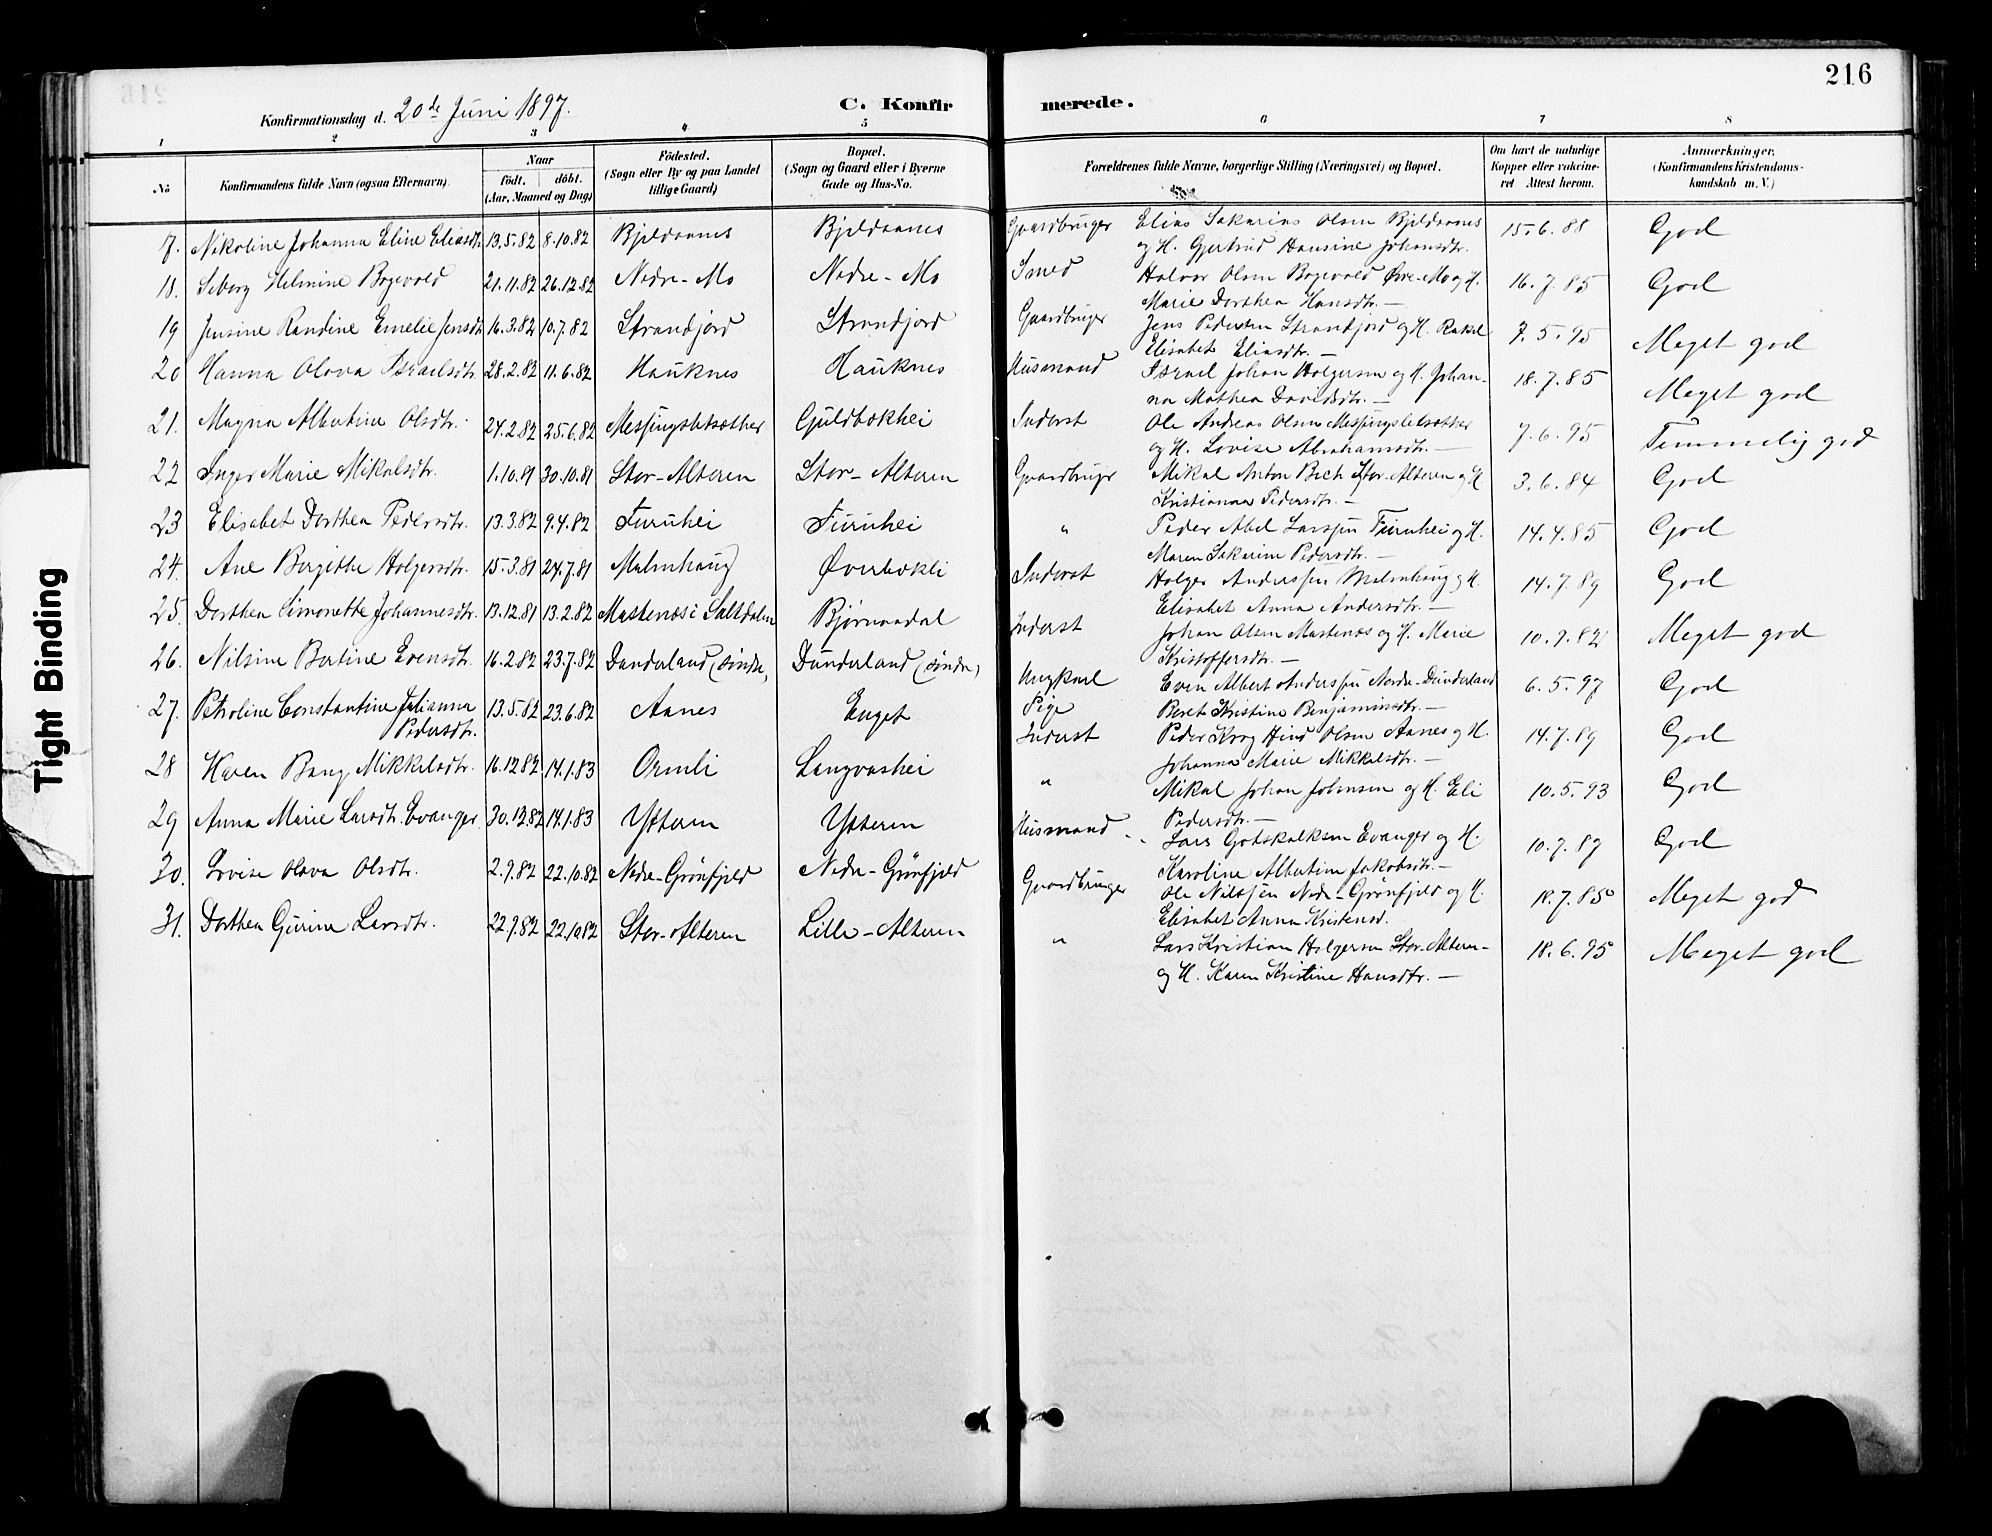 216
Konfirmationsdag d. 20de Juni 1897.
C. Konfirmerede.
1 2 3 4 5 6 7 8
No
Konfirmandens fulde Navn (ogsaa Efternavn).
Naar
födt. döbt.
(Aar, Maaned og Dag)
Födested.
(Sogn eller By og paa Landet
tillige Gaard)
Bopæl.
(Sogn og Gaard eller i Byerne
Gade og Hus-No.
Forældrenes fulde Navne, borgerlige Stilling (Næringsvei) og Bopæl.
Om havt de naturlige
Kopper eller vakcine-
ret Attest herom.
Anmærkninger.
(Konfirmandens Kristendoms-
kundskab m. V.)
7. Nikoline Johanna Eline Eliasdtr. 13.5.82 8.10.82 Bjeldaanes Bjeldaanes Gaardbruger Elias Sakarias Olsen Bjeldaanes 15.6.88 God
og H. Gjertrud Hansine Johansdtr.
18. Seborg Helmine Bogevold 21.11.82 26.12.82 Nedre-Mo Nedre-Mo Smed Halvor Olsen Bogevold Øvre-Mo og H. 16.7.85 God
Marie Dorthea Hansdtr. —
19 Jensine Randine Emelie Jensdtr. 16.3.82 10.7.82 Strandjord Strandjord Gaardbruger Jens Pedersen Strandjord og H. Rakel 7.5.95 Meget god
Elisabet Eliasdtr. —
20 Hanna Olava Israelsdtr. 28.2.82 11.6.82 Hauknes Hauknes Husmand Israel Johan Holgersen og H. Johan- 18.7.85 Meget god
na Mathea Davidsdtr. —
21. Magna Albertine Olsdtr. 24.2.82 25.6.82 Mesjingsletsæther Guldbækhei Inderst Ole Andreas Olsen Mesjingsletsæther 7.6.95 Temmelig god
og H. Lovise Abrahamsdtr. —
22 Inger Marie Mikalsdtr. 1.10.81 30.10.81 Stor-Alteren Stor-Alteren Gaardbrugr Mikal Anton Bech Stor-Alteren og H 3.6.84 God
Kristianna Pedersdtr. —
23 Elisabet Dorthea Pedersdtr. 13.3.82 9.4.82 Furuhei Furuhei " Peder Abel Larssen Furuhei og H. 14.4.85 God
Maren Sakarine Pedersdtr. —
24. Ane Birgitte Holgersdtr. 15.3.81 24.7.81 Malmhaug Øverbækli Inderst Holger Anderssen Malmhaug og H. 14.7.89 God
Elisabet Anna Andersdtr. —
25. Dorthea Simonette Johannesdtr. 13.12.81 13.2.82 Mastenæs i Saltdalen Bjørnaadal Inderst Johan Olsen Mastenæs og H. Marie 10.9.82 Meget god
Kristoffersdtr. —
26. Nilsine Bertine Evensdtr. 16.2.82 23.7.82 Dunderland (söndre) Dunderland (söndre) Ungkarl Even Albert Anderssen Nordre-Dunderland 6.5.97 God
Pige Beret Kristine Benjaminsdtr. —
27. Petroline Constantine Julianna 13.5.82 23.6.82 Aanes Enget Inderst Peder Krog Hind Olsen Aanes og H. 14.7.89 God
Pedersdtr.
Johanna Marie Mikkelsdtr. —
28 Karen Bang Mikkelsdtr. 16.12.82 14.1.83 Ormli Langvashei " Mikal Johan Johnsen og H. Eli 10.5.93 God
Pedersdtr. —
29 Anna Marie Larsdtr. Evanger 30.12.82 14.1.83 Ytteren Ytteren Husmand Lars Gotskalksen Evanger og H. 10.7.89 God
Karoline Albertine Jakobsdtr. —
30. Lovise Olava Olsdtr. 2.9.82 22.10.82 Nedre-Grönfjeld Nedre-Grönfjeld Gaardbruger Ole Nilssen Nedre-Grönfjeld og H. 18.7.85 Meget god
Elisabet Anna Kristensd.
31. Dorthea Gurine Larsdtr. 22.9.82 22.10.82 Stor-Alteren Lille-Alteren " Lars Kristian Holgersen Stor-Alteren- 18.6.95 Meget god
og H. Karen Kristine Hansdtr. —
Tight Binding